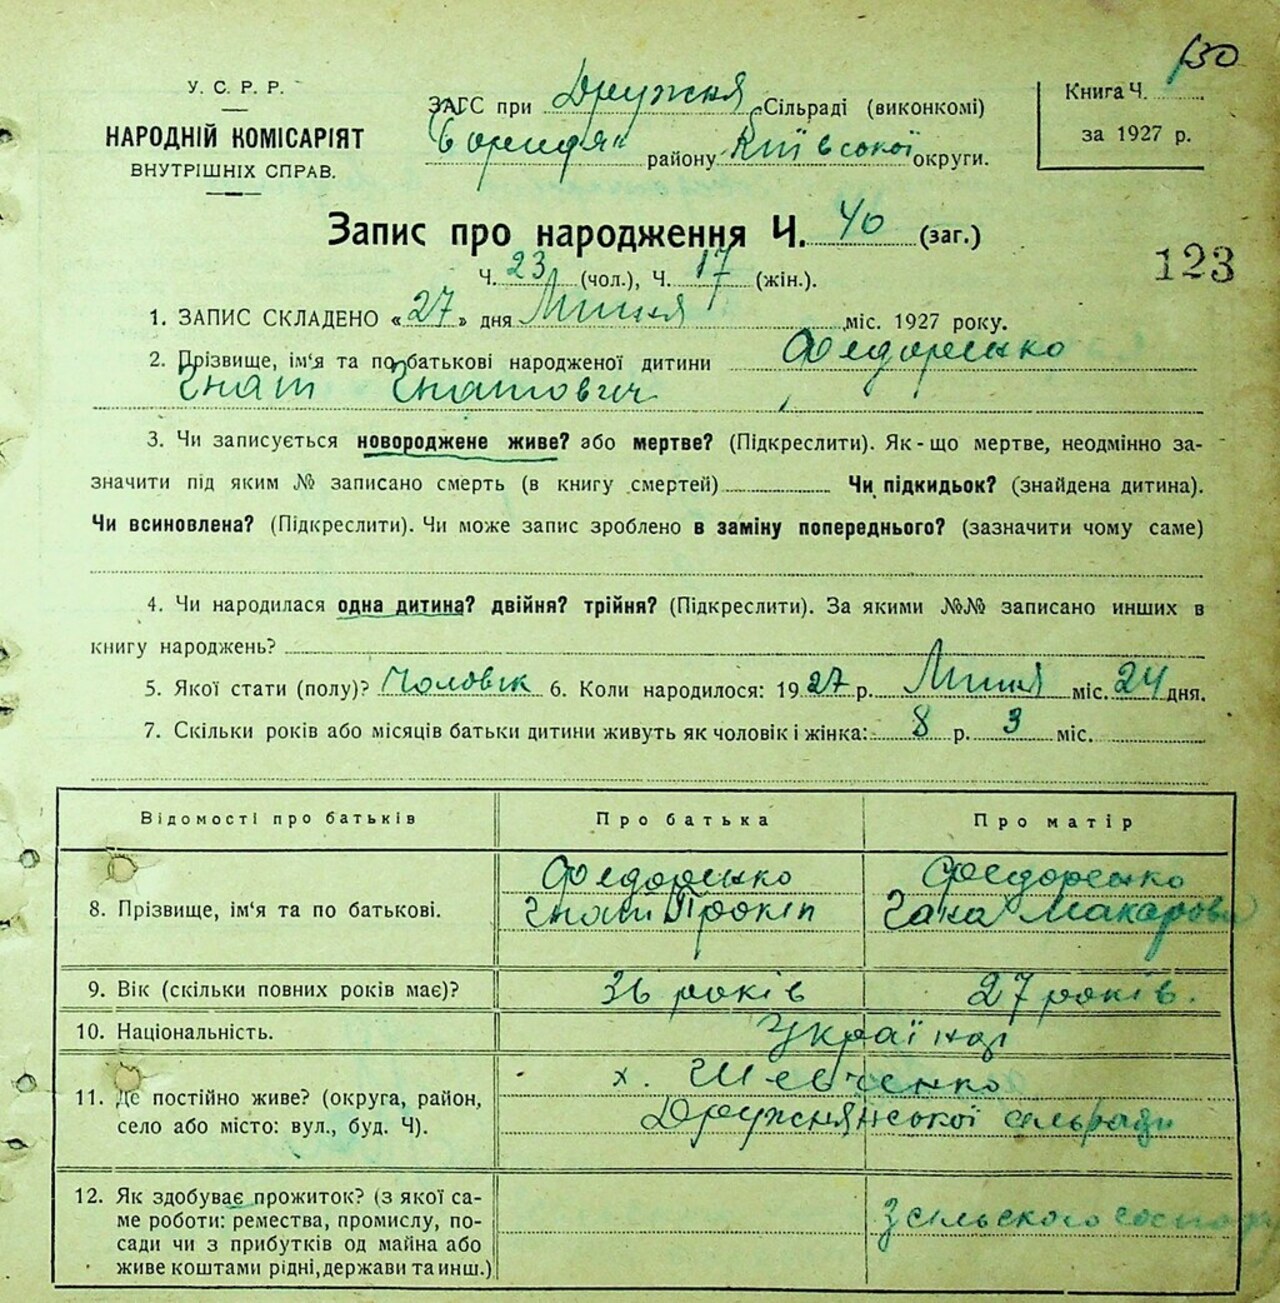 130
У. С. Р. Р.
НАРОДНІЙ КОМІСАРІЯТ
ВНУТРІШНІХ СПРАВ.
ЗАГС при Дружня Сільраді (виконкомі)
району Київської округи.
Книга Ч.
за 1927 р.
Запис про народження Ч. 40 (заг.)
Ч. 23 (чол.), Ч. 17 (жін.).
123
1. ЗАПИС СКЛАДЕНО «27» дня Липня міс. 1927 року.
2. Прізвище, ім'я та по батькові народженої дитини Федоренко
Гнат Гнатович
3. Чи записується новороджене живе? або мертве? (Підкреслити). Як-що мертве, неодмінно за-
значити під яким № записано смерть (в книгу смертей) Чи підкидьок? (знайдена дитина).
Чи всиновлена? (Підкреслити). Чи може запис зроблено в заміну попереднього? (зазначити чому саме)
4. Чи народилася одна дитина? двійня? трійня? (Підкреслити). За якими №№ записано инших в
книгу народжень?
5. Якої стати (полу)? Чоловік 6. Коли народилося: 1927 р. Липня міс. 24 дня.
7. Скільки років або місяців батьки дитини живуть як чоловік і жінка: 8 р. 3 міс.
Відомості про батьків Про батька Про матір
Федоренко Федоренко
8. Прізвище, ім'я та по батькові. Гнат Прокіп Гана Макарова
9. Вік (скільки повних років має)? 36 років 27 років.
10. Національність. Українці
х. Шевченко
11. Де постійно живе? (округа, район,
село або місто: вул., буд. Ч). Дружнянської сельради
12. Як здобуває прожиток? (з якої са-
ме роботи: ремества, промислу, по-
сади чи з прибутків од майна або
живе коштами рідні, держави та инш.)
З сельского